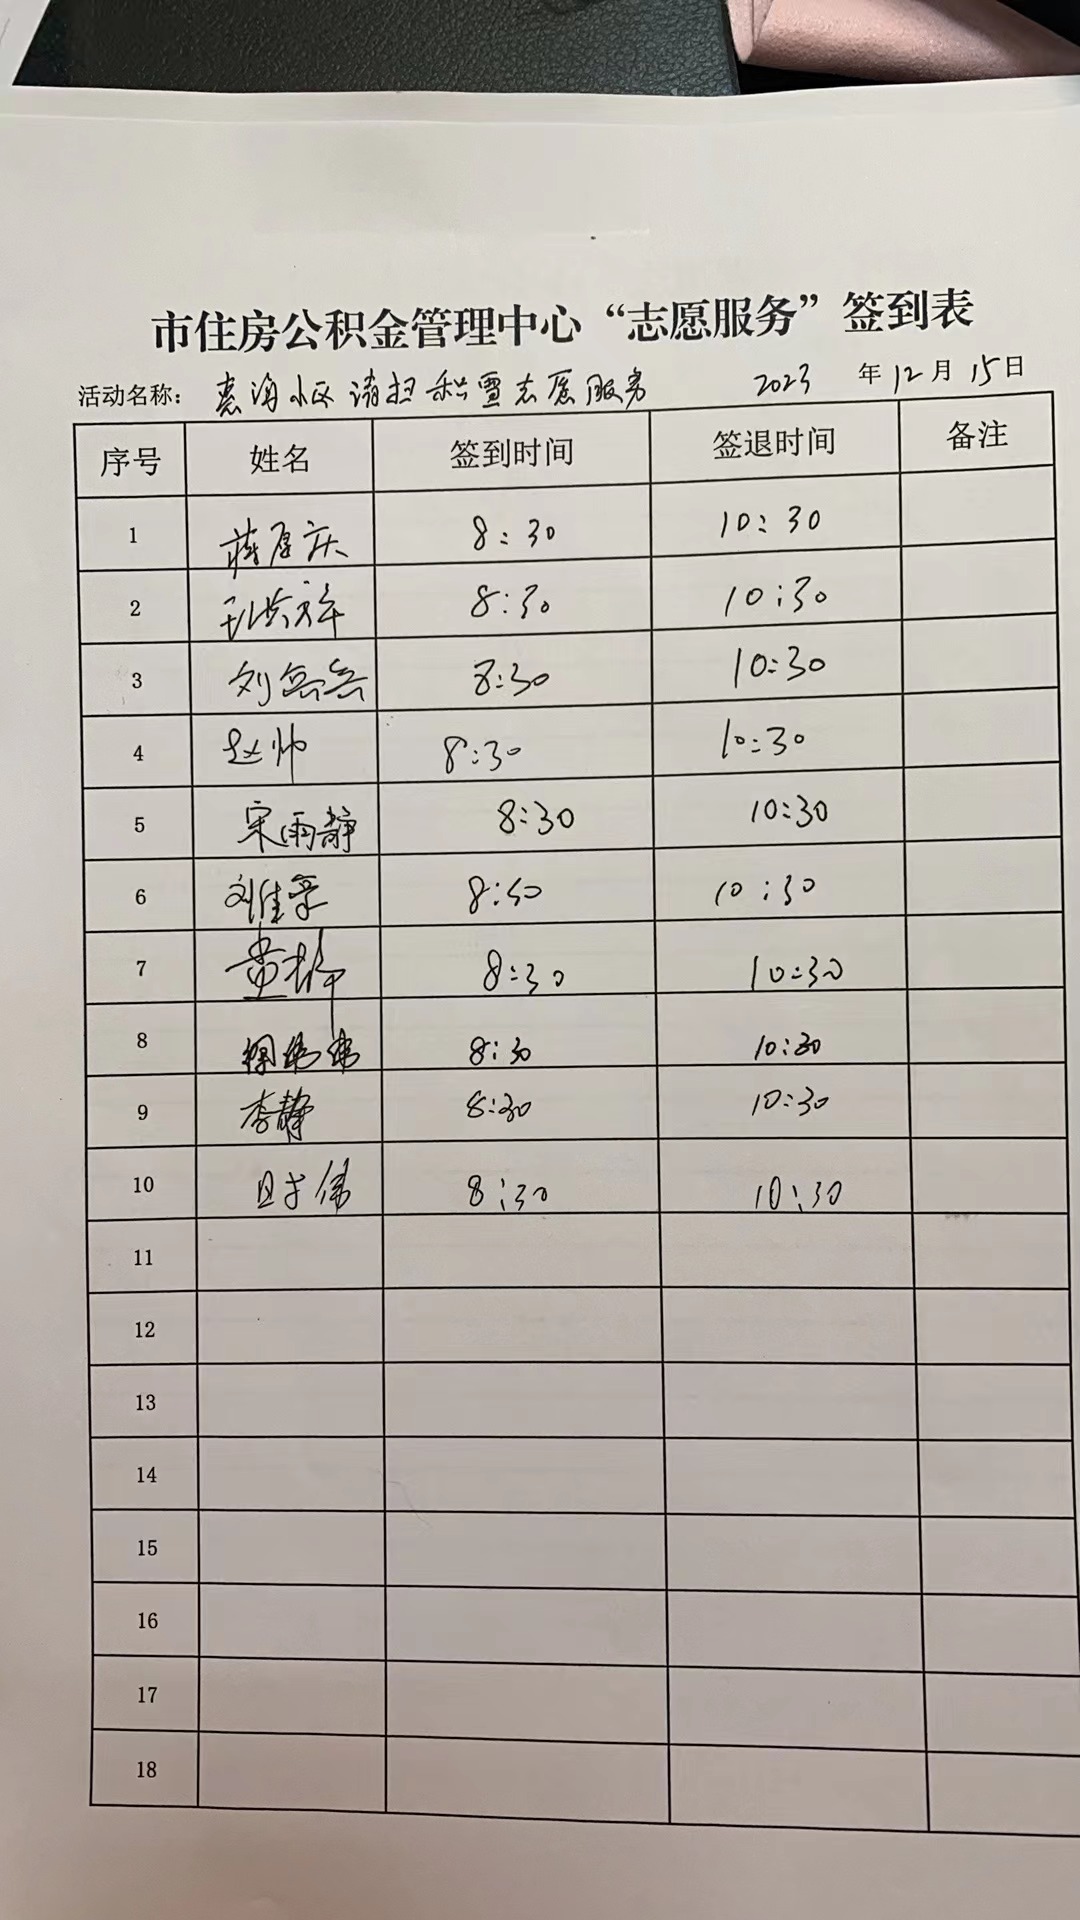 市住房公积金管理中心“志愿服务”签到表
活动名称： 惠海小区清扫积雪志愿服务 2023 年 12 月 15 日
序号 姓名 签到时间 签退时间 备注
1 蒋厚庆 8:30 10:30
2 8:30 10:30
3 刘岳岳 8:30 10:30
4 赵帅 8:30 10:30
5 宋雨静 8:30 10:30
6 刘佳豪 8:30 10:30
7 8:30 10:30
8 8:30 10:30
9 李静 8:30 10:30
10 8:30 10:30
11
12
13
14
15
16
17
18